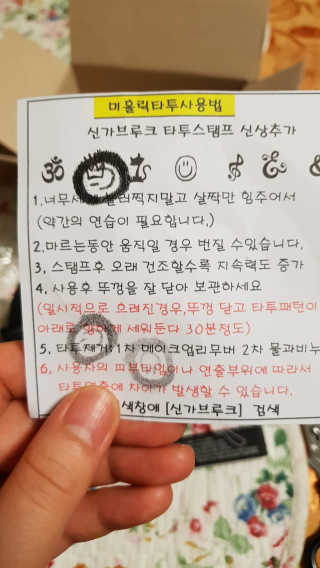 미홀릭타투사용법
신가브루크 타투스탬프 신상추가
1.너무 찍지말고 살짝만 힘주어서
(약간의 연습이 필요합니다.)
2.마르는동안 움직일 경우 번질 수있습니다.
3. 스탬프후 오래 건조할수록 지속력도 증가
4. 사용후 뚜껑을 잘 닫아 보관하세요
(일시적으로 흐려진경우,뚜껑 닫고 타투패턴이
아래로 세워둔다 30분정도)
5. 타투제거:1차 메이크업리무버 2차 물과비누
6. 사용자의 피부타입이나 연출부위에 따라서
타투 차이가 발생할 수 있습니다.
색창에 [신가브루크] 검색